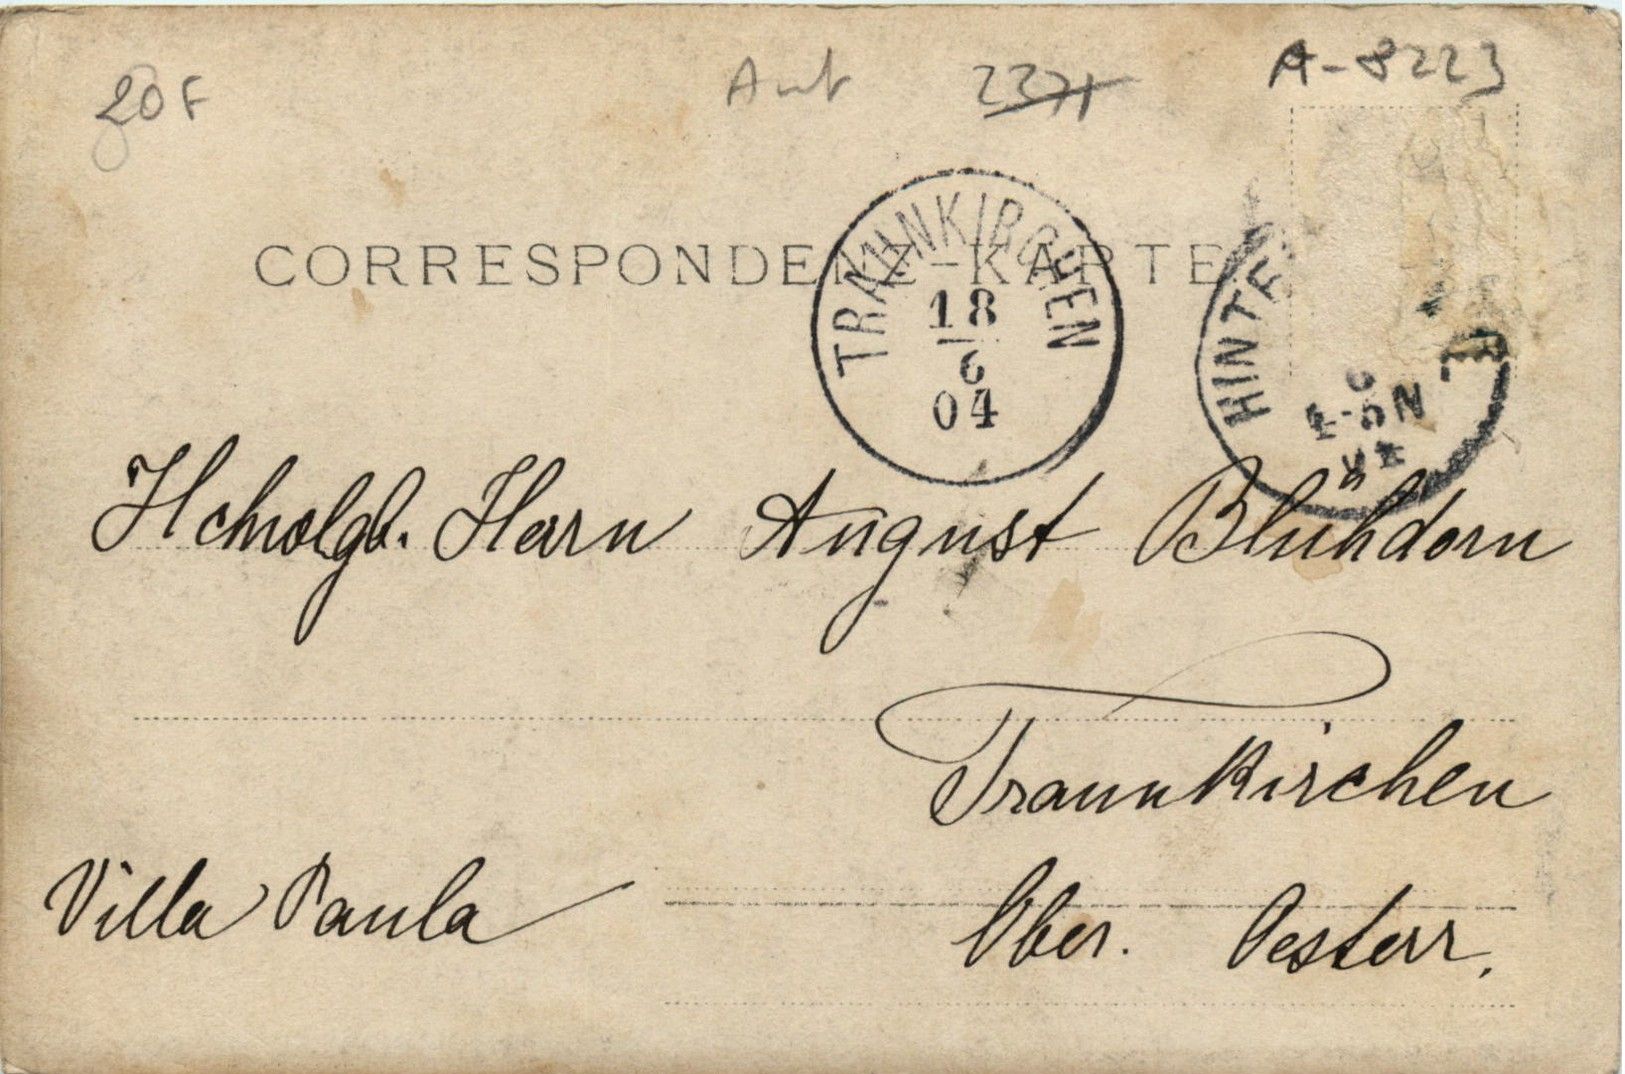 20 F
A-8223
CORRESPONDENZ-KARTE
TRAUNKIRCHEN
18
6
04
HINTE
Herrn August Blühdorn
Traunkirchen
Villa Paula
Ober. Oesterr.